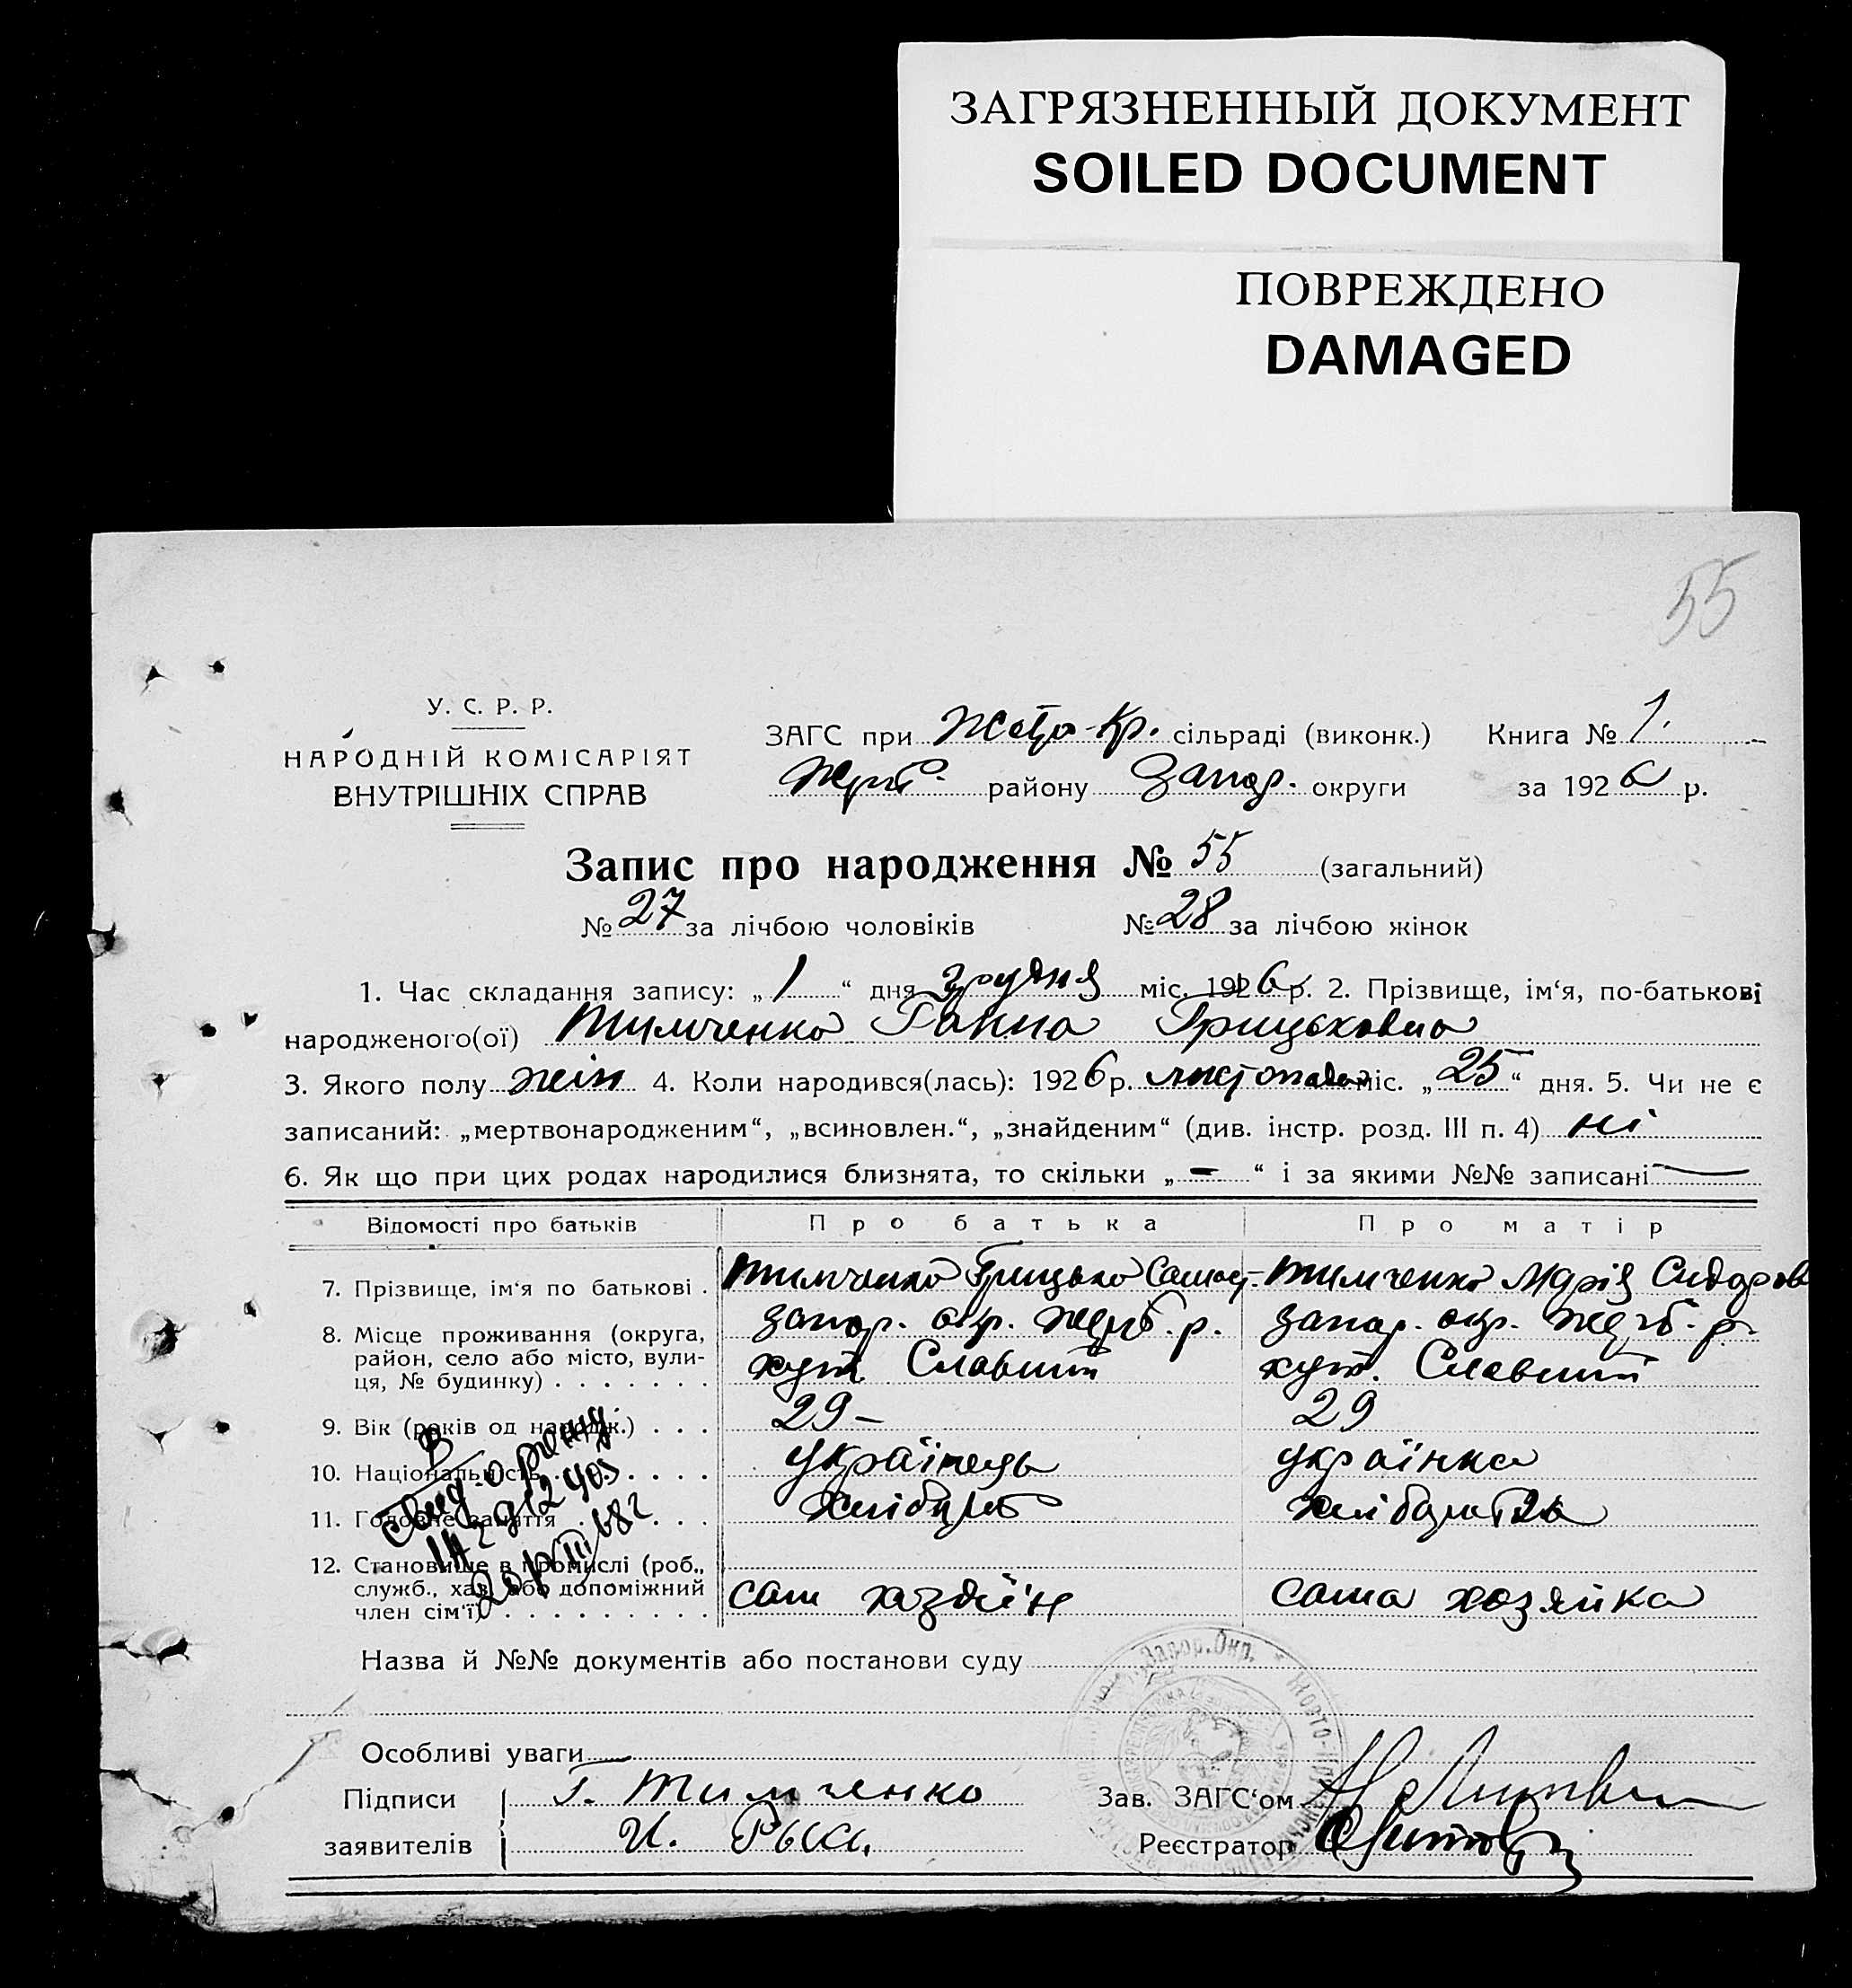 ЗАГРЯЗНЕННЫЙ ДОКУМЕНТ
SOILED DOCUMENT
ПОВРЕЖДЕНО
DAMAGED
55
У. С. Р. Р.
НАРОДНІЙ КОМІСАРІЯТ
ВНУТРІШНІХ СПРАВ
ЗАГС при Жовто-Кр. сільраді (виконк.) Книга № 1.
району Запор. округи за 1926 р.
Запис про народження № 55 (загальний)
№ 27 за лічбою чоловіків № 28 за лічбою жінок
1. Час складання запису: „ 1 “ дня грудня міс. 1926 р. 2. Прізвище, ім‘я, по-батькові
народженого(ої) Тимченко Ганна Грицьковна
3. Якого полу жін 4. Коли народився(лась): 1926 р. листопада міс. „ 25 “ дня. 5. Чи не є
записаний: „мертвонародженим“, „всиновлен.“, „знайденим“ (див. інстр. розд. III п. 4) ні
6. Як що при цих родах народилися близнята, то скільки „ — “ і за якими №№ записані —
Відомості про батьків Про батька Про матір
7. Прізвище, ім‘я по батькові . Тимченко Грицько Тимченко Марія Сидоров
8. Місце проживання (округа, Запор. окр. р. Запор. окр. р.
район, село або місто, вули- хут. хут.
ця, № будинку) . . . . . . .
9. Вік (років од народж.) . . . 29 — 29
10. Національність . . . . . . українець українка
11. Головне заняття . . . . . . хлібороб хліборобка
12. Становище в промислі (роб.,
служб., хаз. або допоміжний
член сім‘ї) . . . . . . . . . сам хазяїн сама хозяйка
Назва й №№ документів або постанови суду
Особливі уваги —
Підписи Г. Тимченко Зав. ЗАГС‘ом
заявителів И. Реєстратор
Запор. Окр.